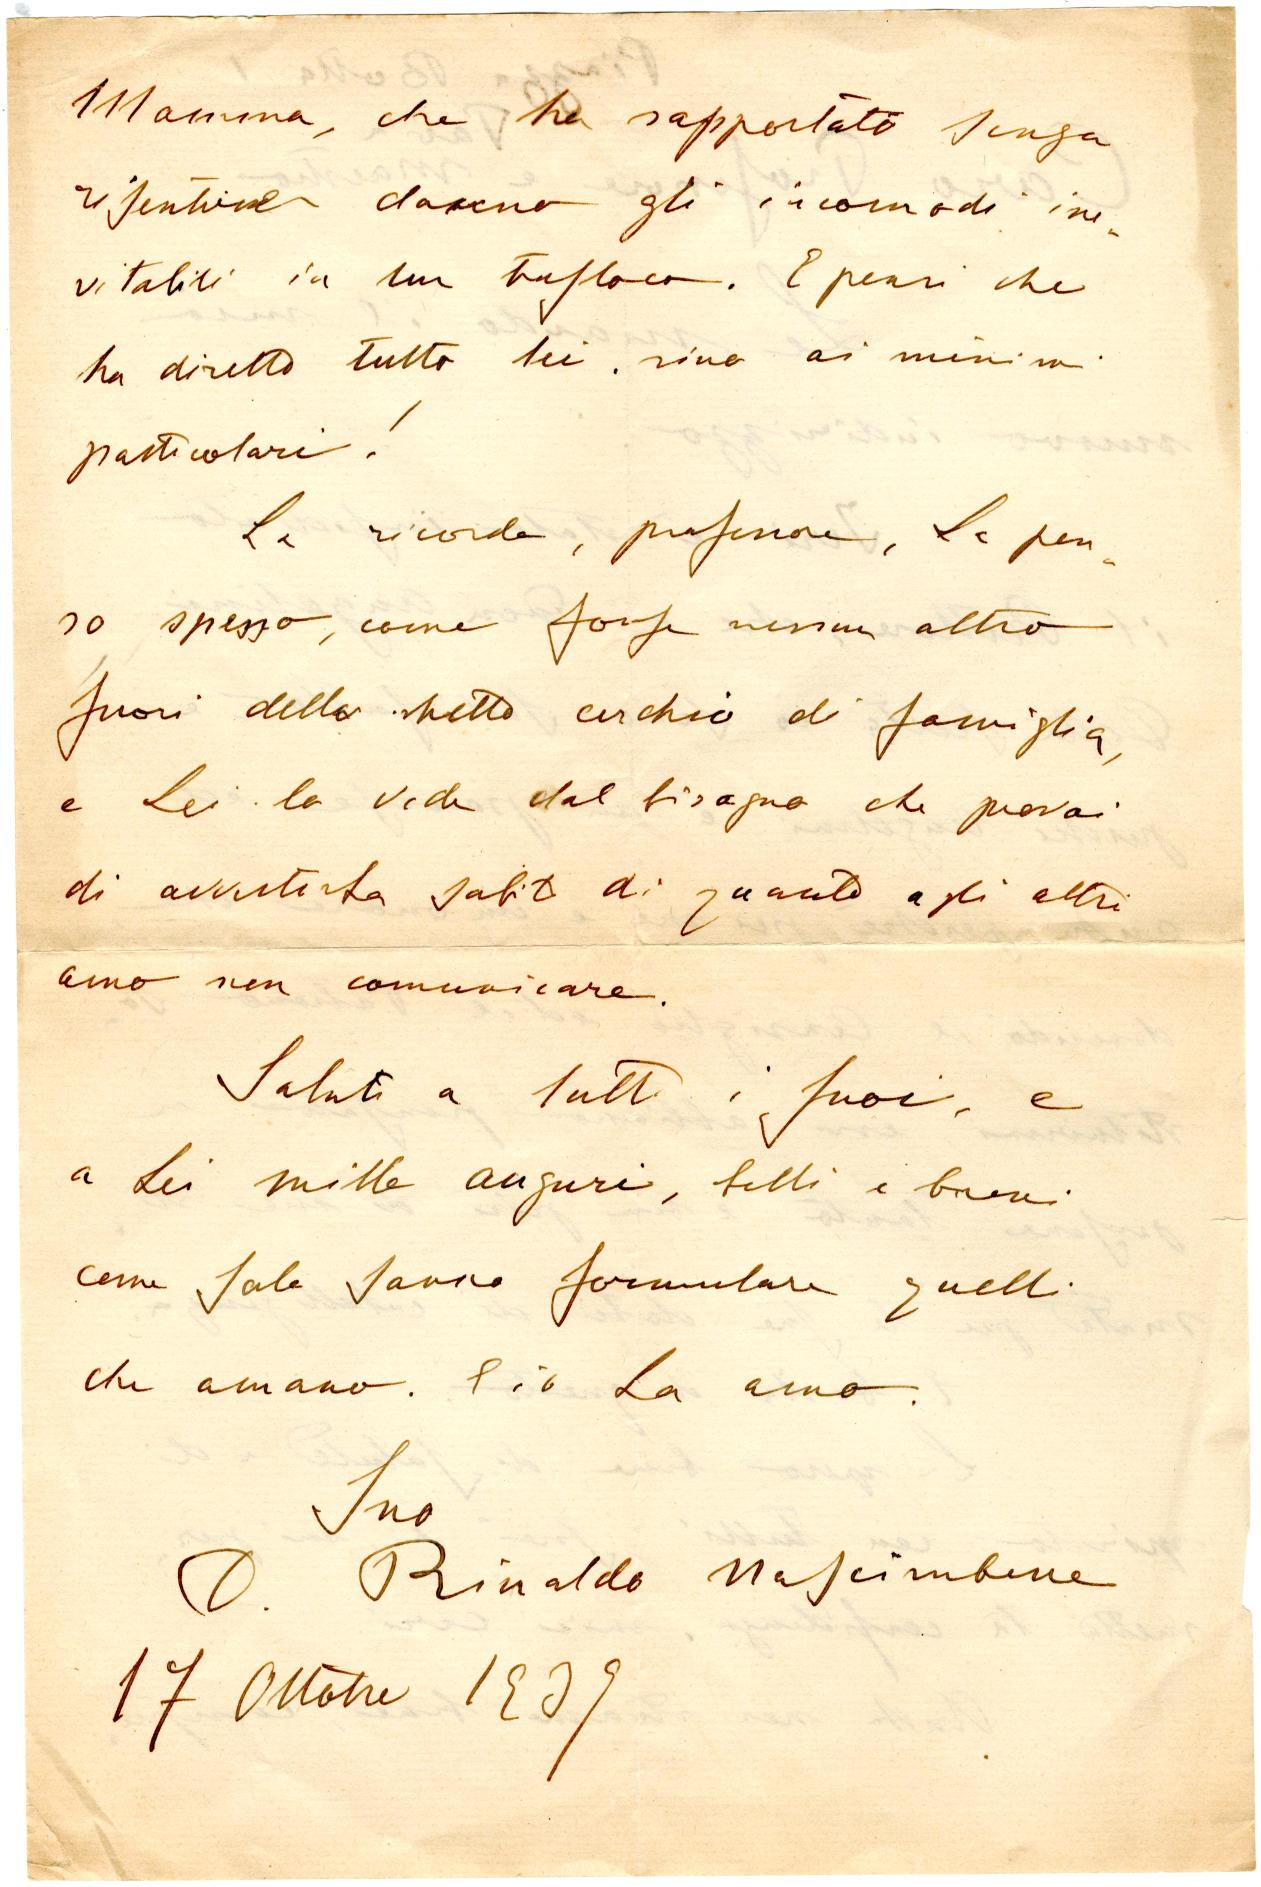 Mamma, che ha sopportato senza
risentirne danno gli incomodi ine-
vitabili in un trasloco. E pensi che
ha diretto tutto lei, sino ai minimi
particolari!
La ricordo, professore, La pen-
so spesso, come forse nessun altro
fuori dello stretto cerchio di famiglia,
e Lei lo vede dal bisogno che provai
di avvertirLa subito di quanto agli altri
amo non comunicare.
Saluti a tutti i suoi, e
a Lei mille auguri, belli e buoni
come solo sanno formulare quelli
che amano. E io La amo.
Suo
D. Rinaldo Nascimbene
17 Ottobre 1939